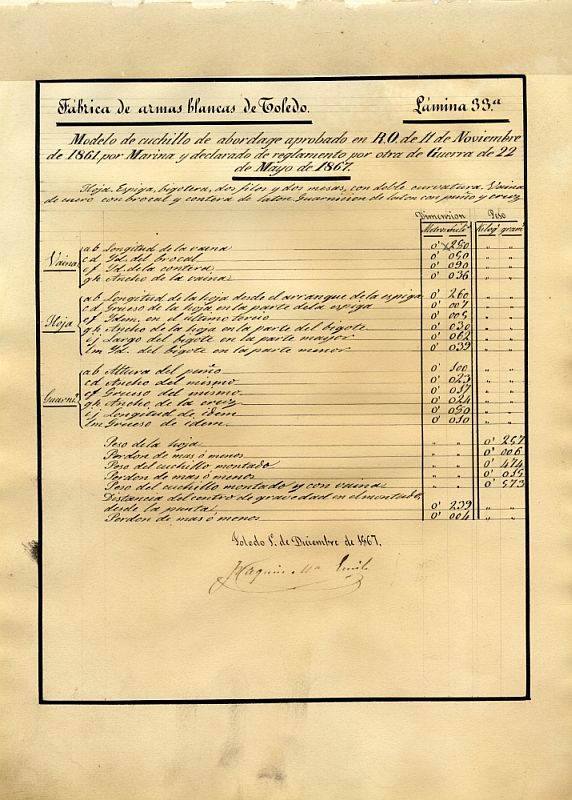 Fábrica de armas blancas de Toledo. Lámina 33.ª
Modelo de cuchillo de abordage aprobado en R.O. de 11 de Noviembre
de 1861, por Marina y declarado de reglamento por otra de Guerra de 22
de Mayo de 1867.
Hoja. Espiga, bigotera, dos filos y dos mesas, con doble curvatura. Vaina
de cuero con brocal y contera de laton. Guarnicion de laton con puño y cruz
Dimension Peso
Metros Kilóg. gram.
Vaina
ab Longitud de la vaina 0' 250 " "
cd Id. del brocal 0' 050 " "
ef Id. de la contera 0' 090 " "
gh Ancho de la vaina 0' 036 " "
Hoja
ab Longitud de la hoja desde el arranque de la espiga 0' 260 " "
cd Grueso de la hoja en la parte de la espiga 0' 007 " "
ef Idem. en el último tercio 0' 005 " "
gh Ancho de la hoja en la parte del bigote 0' 030 " "
ij Largo del bigote en la parte mayor 0' 062 " "
lm Id. del bigote en la parte menor 0' 039 " "
Guarn.
ab Altura del puño 0' 100 " "
cd Ancho del mismo 0' 023 " "
ef Grueso del mismo 0' 017 " "
gh Ancho de la cruz 0' 024 " "
ij Longitud de idem 0' 090 " "
lm Grueso de idem 0' 010 " "
Peso de la hoja " " 0' 257
Perdon de mas ó menos " " 0' 006
Peso del cuchillo montado " " 0' 474
Perdon de mas ó menos " " 0' 015
Peso del cuchillo montado y con vaina " " 0' 573
Distancia del centro de gravedad en el montado,
desde la punta 0' 239 " "
Perdon de mas ó menos 0' 004 " "
Toledo 1º. de Diciembre de 1867.